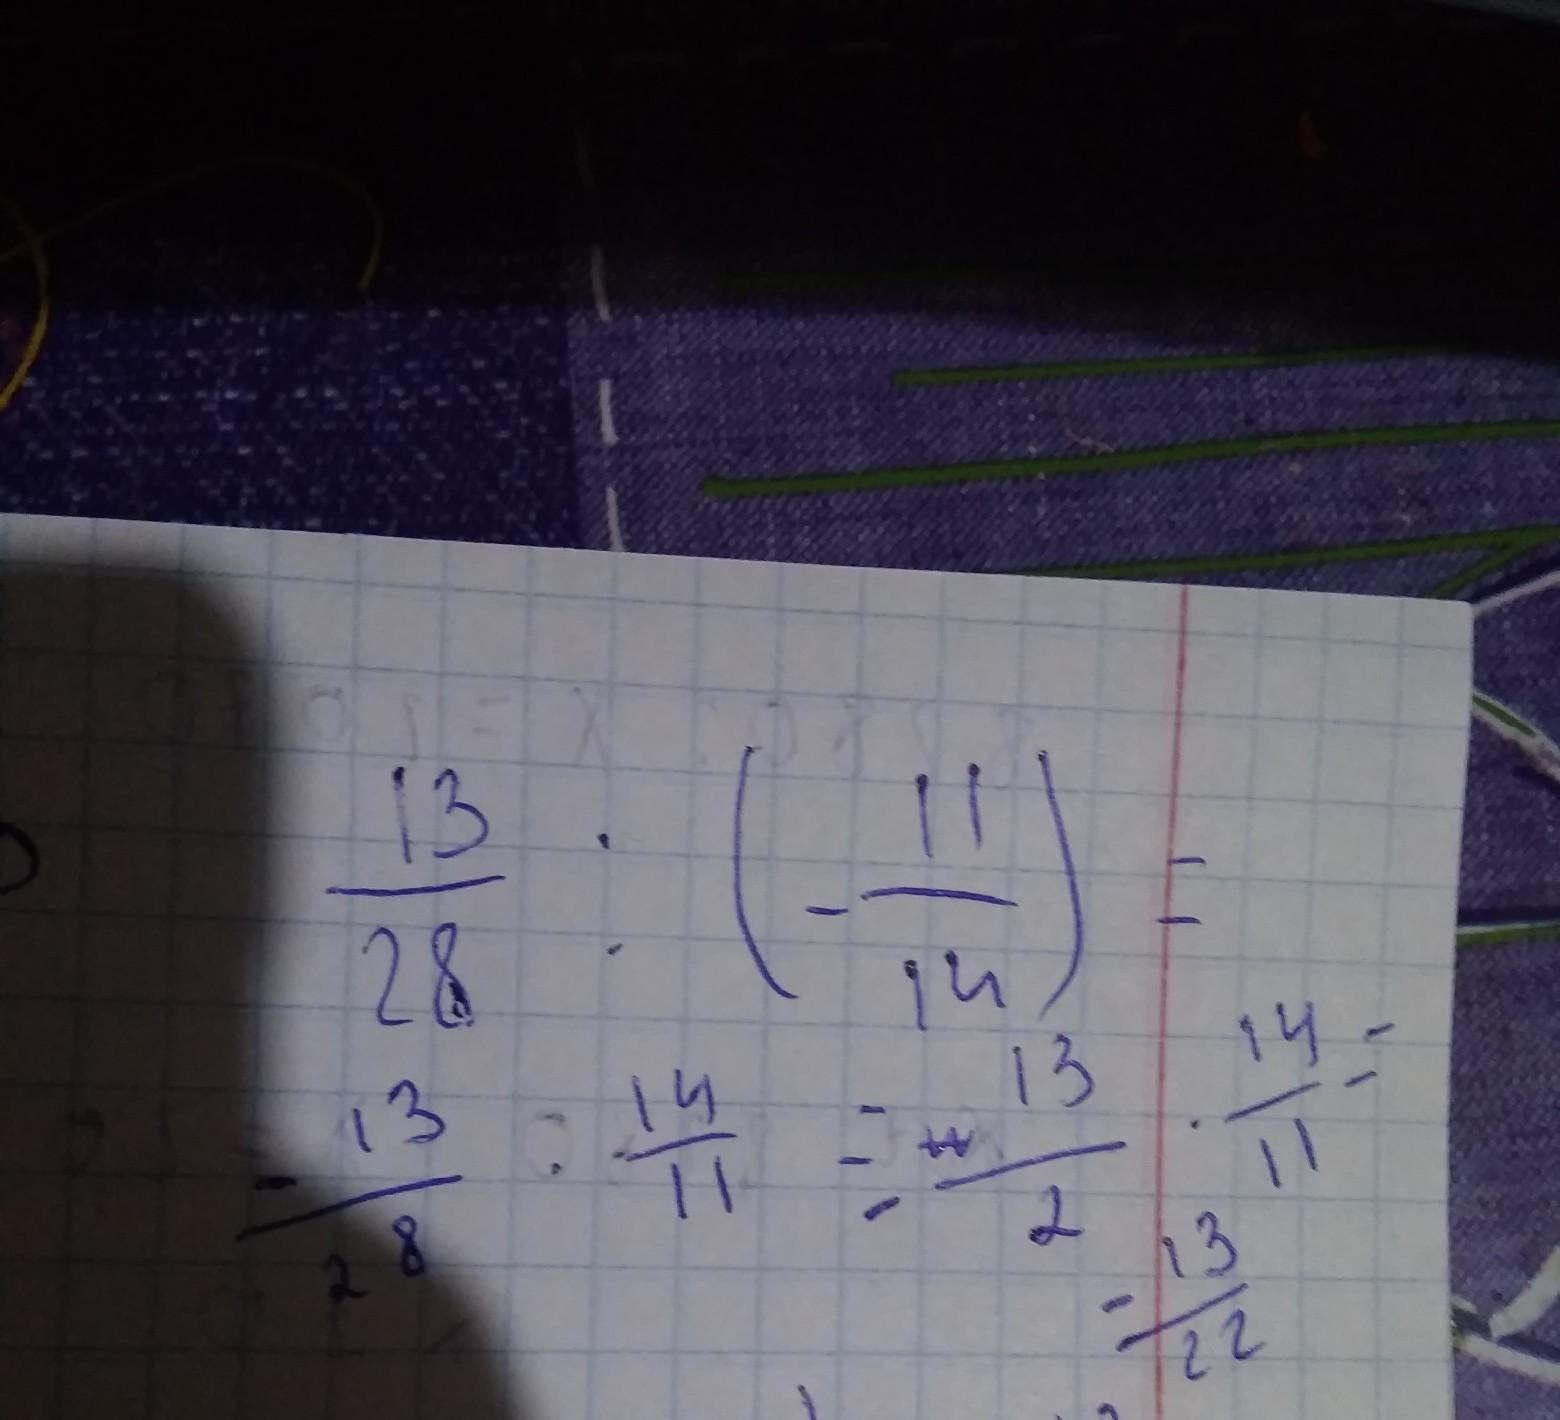 13/28 : (- 11/14) =
- 13/28 · 14/11 = - 13/2 · 14/11 =
- 13/22